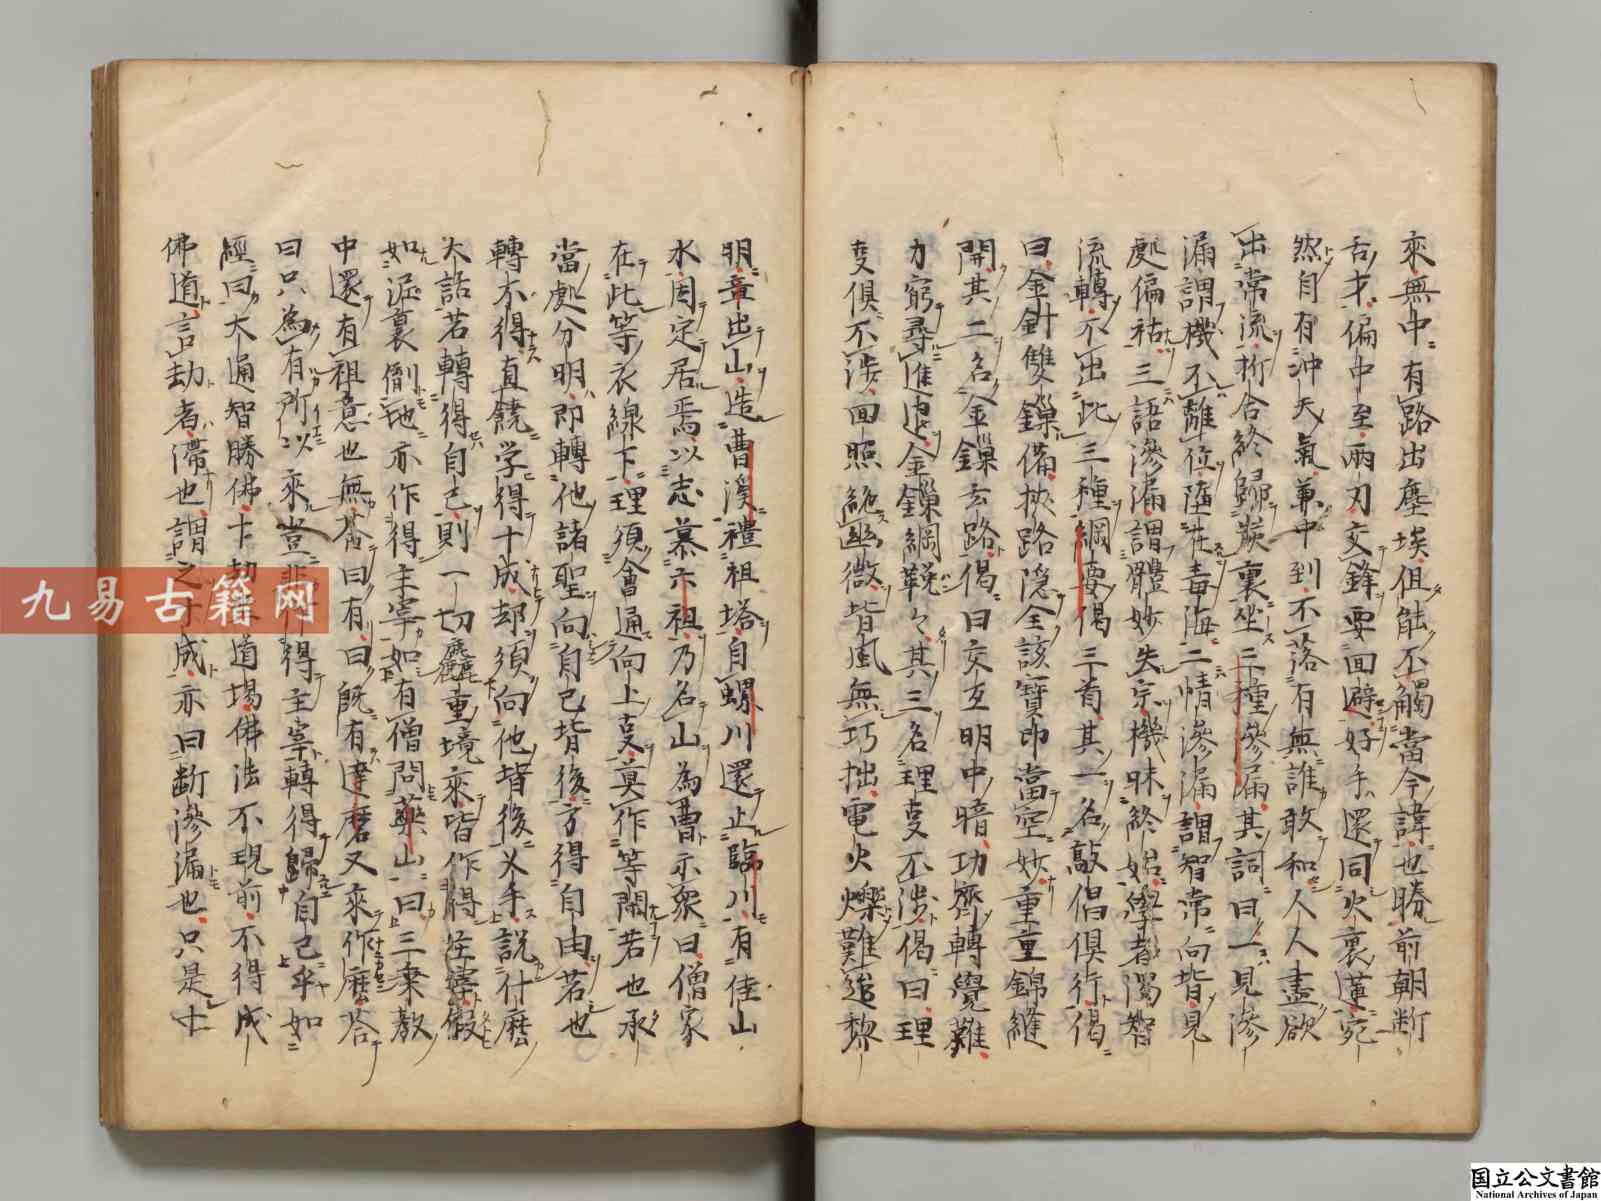 來無中有路出塵埃但能不觸當今諱也勝前朝斷
舌才偏中至兩刃交鋒要回避好手還同火裏蓮宛
然自有沖天氣兼中到不落有無誰敢和人人盡欲
出常流折合終歸炭裏坐三種滲漏其詞曰一見滲
漏謂機不離位墮在毒海二情滲漏謂智常向背見
處偏枯三語滲漏謂體妙失宗機昧終始學者濁智
流轉不出此三種綱要偈三首其一名敲倡俱行偈
曰金針雙鎖備挾路隱全該寶印當空妙重重錦縫
開其二名金鎖玄路偈曰交互明中暗功齊轉覺難
力窮尋進退金鎖網鞔々其三名理事不涉偈曰理
事俱不涉回照絶幽微背風無巧拙電火爍難追黎
明章出山造曹溪禮祖塔自螺川還止臨川有佳山
水因定居焉以志慕六祖乃名山為曹示衆曰僧家
在此等衣線下理須會通向上事莫作等閑若也承
當處分明即轉他諸聖向自己背後方得自由若也
轉不得直饒学得十成却須向他背後叉手說什麼
大話若轉得自己則一切麤重境來皆作得主宰假
如泥裏倒地亦作得主宰如有僧問藥山曰三乗教
中還有祖意也無荅曰有曰既有達磨又來作麼荅
曰只為有所以來豈非作得主宰轉得歸自己乎如
經曰大通智勝佛十劫坐道場佛法不現前不得成
佛道言劫者滯也謂之十成亦曰断滲漏也只是十
九易古籍网
国立公文書館
National Archives of Japan